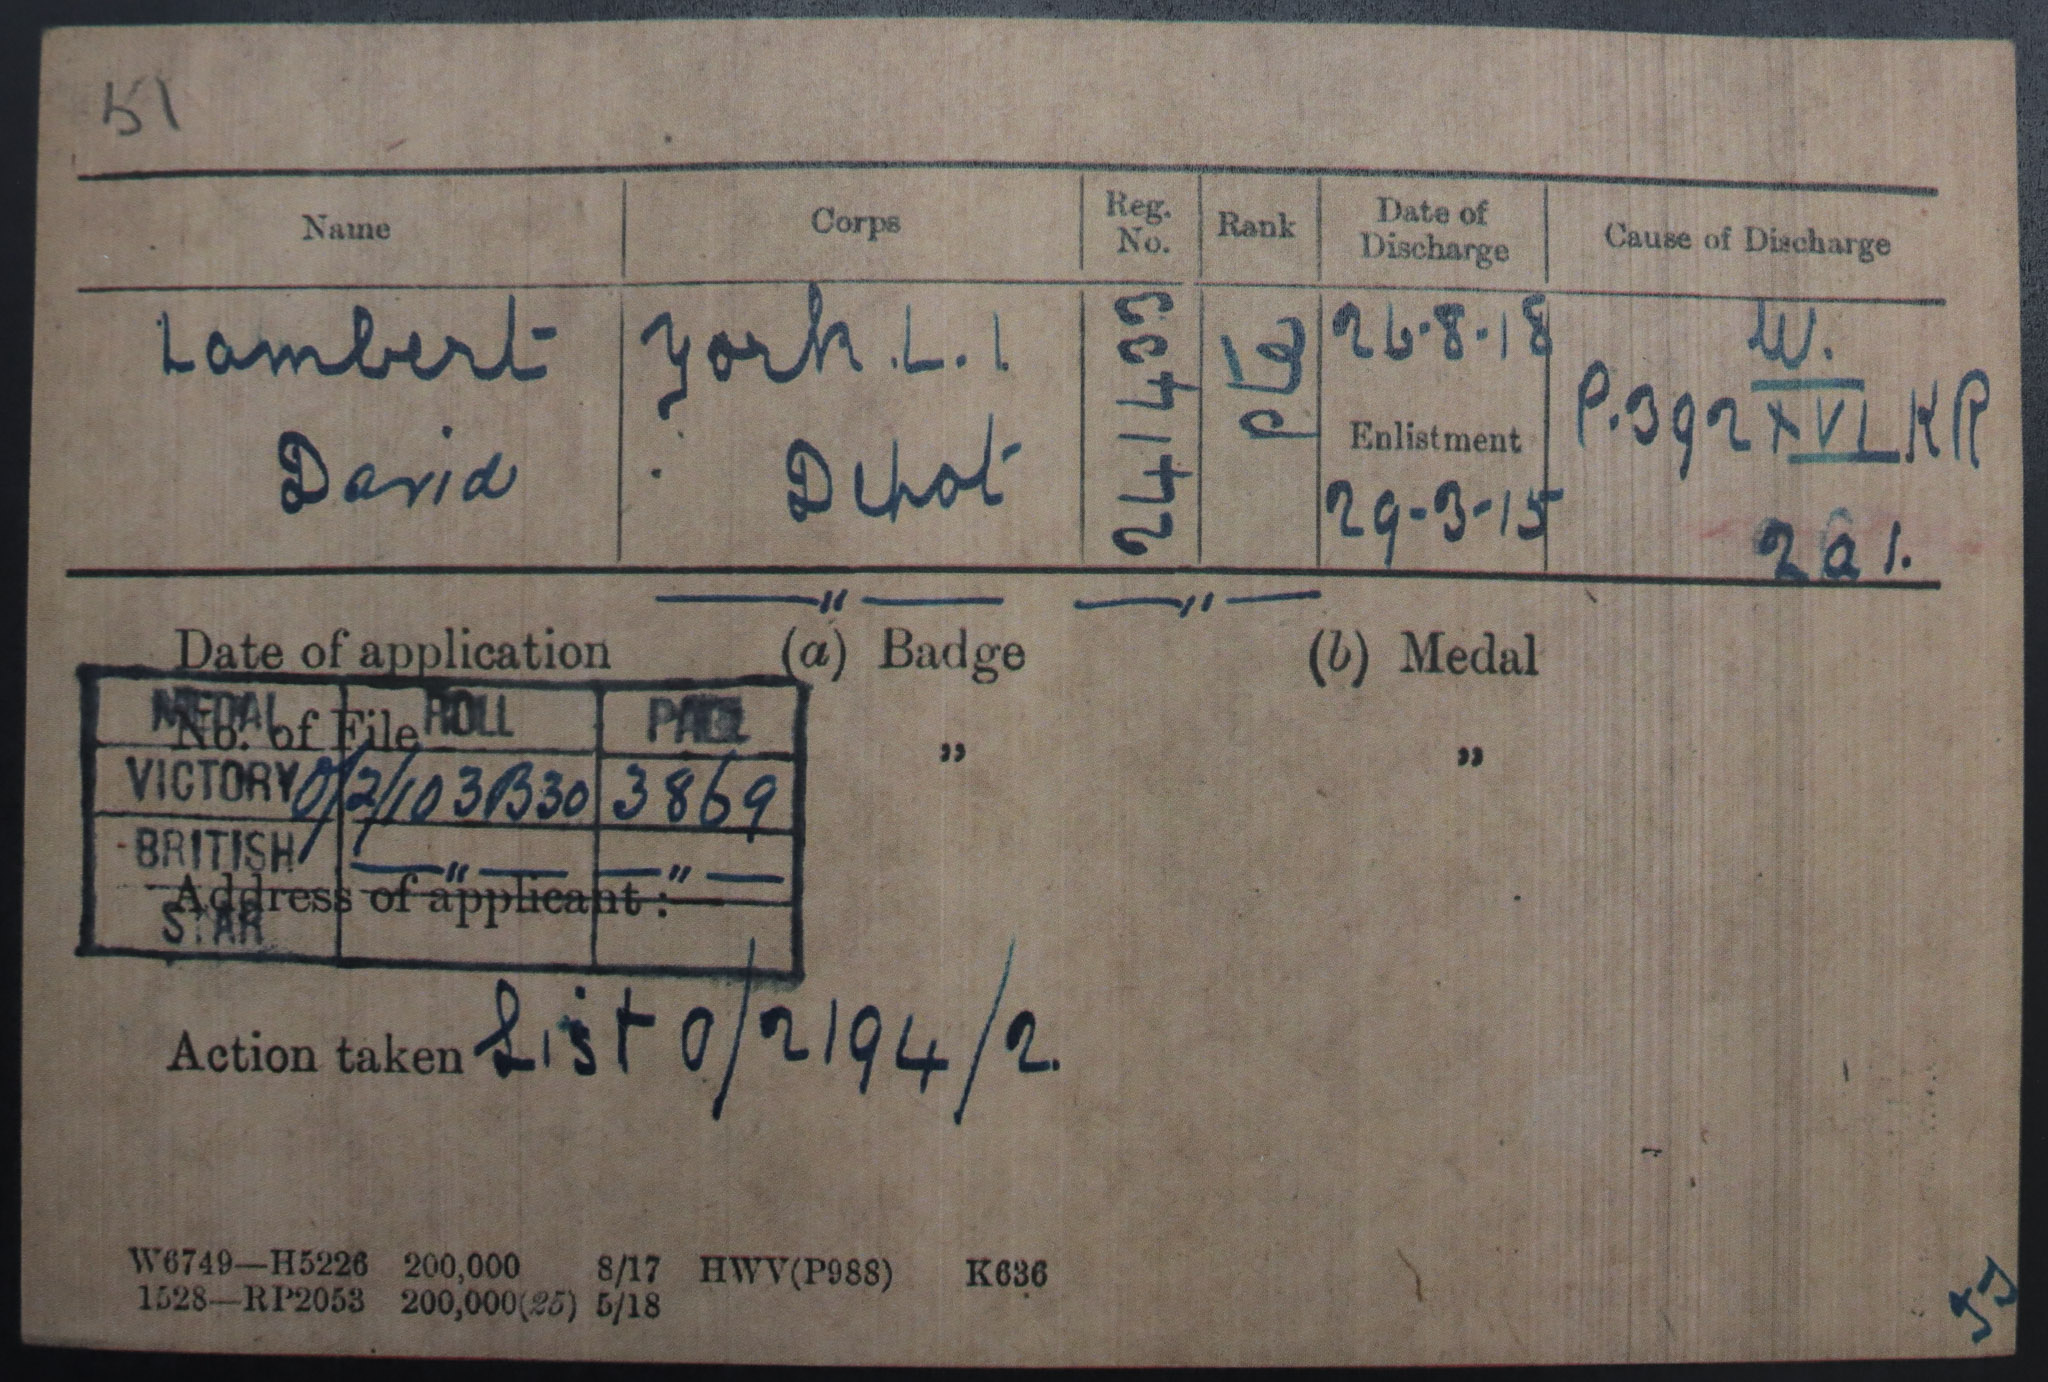 51
Name Corps Reg. No. Rank Date of Discharge Cause of Discharge
Lambert York. L. I. 241433 Pte 26-8-18 W.
P.392 XVI KR
David Depot Enlistment
29-3-15 2a1.
—"— —"—
Date of application (a) Badge (b) Medal
MEDAL ROLL PAGE
No. of File ,, ,,
VICTORY O/2/103B30 3869
BRITISH —"— —"—
Address of applicant :
STAR
Action taken List O/2194/2.
W6749—H5226 200,000 8/17 HWV(P988) K636
1528—RP2053 200,000(25) 5/18